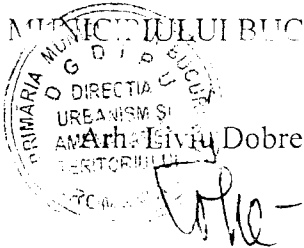 MUNICIPIULUI BUC
PRIMARIA MUN BUCUR
D G D I P U
DIRECTIA
URBANISM SI
AM
TERITORIULUI
Arh. Liviu Dobre